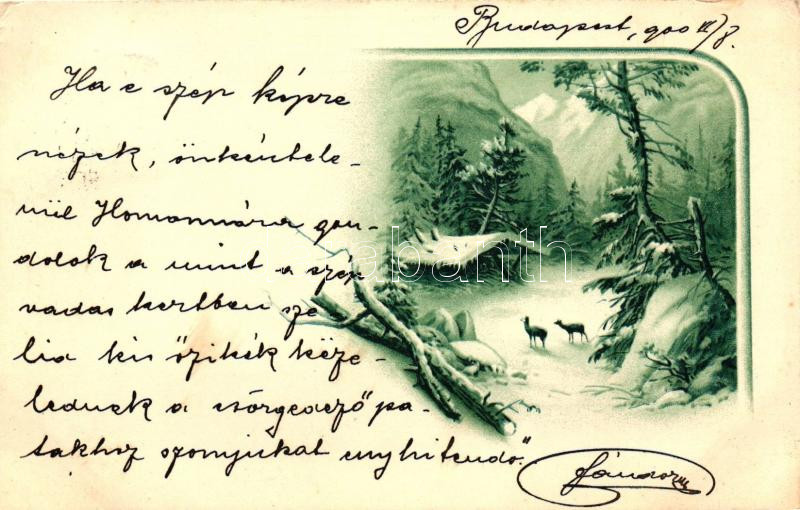 Budapest, 900 VI/8.
Ha e szép képre
nézek, önkéntele-
nül Homonnára gon-
dolok a mint a szép
vadas kertben sze-
lid kis őzikék köze-
lednek a csörgedező pa-
takhoz szomjukat enyhitendő.
Sándor
darabanth